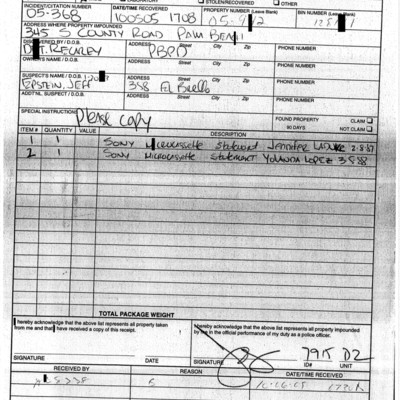 STOLEN/RECOVERED OTHER
INCIDENT/CITATION NUMBER DATE/TIME RECOVERED PROPERTY NUMBER (Leave Blank) BIN NUMBER (Leave Blank)
05-368 100505 1708
ADDRESS WHERE PROPERTY IMPOUNDED
345 S COUNTY ROAD PALM BEACH
D.O.B. ADDRESS Street City Zip PHONE NUMBER
PBPD
OWNER'S NAME / D.O.B. ADDRESS Street City Zip PHONE NUMBER
SUSPECT'S NAME / D.O.B. ADDRESS Street City Zip PHONE NUMBER
EPSTEIN, JEFF 358 El Brillo
ADDT'NL SUSPECT / D.O.B. ADDRESS Street City Zip PHONE NUMBER
SPECIAL INSTRUCTION Please copy FOUND PROPERTY CLAIM
90 DAYS NOT CLAIM
ITEM # QUANTITY VALUE DESCRIPTION
1 1 SONY Microcassette Statement JENNIFER
2 1 SONY Microcassette Statement YOLANDA LOPEZ
TOTAL PACKAGE WEIGHT
I hereby acknowledge that the above list represents all property taken
from me and that I have received a copy of this receipt.
I hereby acknowledge that the above list represents all property impounded
by me in the official performance of my duty as a police officer.
7915 D2
SIGNATURE DATE SIGNATURE ID# UNIT
RECEIVED BY REASON DATE